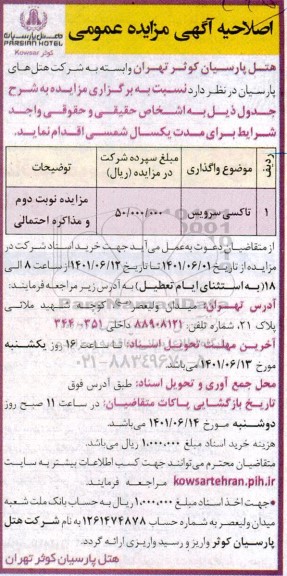 هتل پارسیان
PARSIAN HOTEL
کوثر Kowsar
اصلاحیه آگهی مزایده عمومی
هتل پارسیان کوثر تهران وابسته به شرکت هتل‌های
پارسیان در نظر دارد نسبت به برگزاری مزایده به شرح
جدول ذیل به اشخاص حقیقی و حقوقی واجد
شرایط برای مدت یکسال شمسی اقدام نماید.
ردیف موضوع واگذاری مبلغ سپرده شرکت در مزایده (ریال) توضیحات
۱ تاکسی سرویس ۵۰/۰۰۰/۰۰۰ مزایده نوبت دوم و مذاکره احتمالی
از متقاضیان دعوت به عمل می‌آید جهت خرید اسناد شرکت در
مزایده از تاریخ ۱۴۰۱/۰۶/۰۱ تا تاریخ ۱۴۰۱/۰۶/۱۳ از ساعت ۸ الی
۱۸ (به استثنای ایام تعطیل) به آدرس زیر مراجعه فرمایند:
آدرس تهران: میدان ولیعصر، کوچه شهید ملائی
پلاک ۲۱، شماره تلفن: ۸۸۹۰۸۱۲۱ داخلی ۳۵۱ - ۳۴۴
آخرین مهلت تحویل اسناد: تا ساعت ۱۶ روز یکشنبه
مورخ ۱۴۰۱/۰۶/۱۳ می‌باشد.
۰۲۱-۸۸۳۴۹۶۷۰
محل جمع آوری و تحویل اسناد: طبق آدرس فوق
تاریخ بازگشایی پاکات متقاضیان: در ساعت ۱۱ صبح روز
دوشنبه مورخ ۱۴۰۱/۰۶/۱۴ می‌باشد.
هزینه خرید اسناد مبلغ ۱.۰۰۰.۰۰۰ ریال می‌باشد.
متقاضیان محترم می‌توانند جهت کسب اطلاعات بیشتر به سایت
kowsartehran.pih.ir مراجعه فرمایند.
*جهت اخذ اسناد مبلغ ۱,۰۰۰,۰۰۰ ریال به حساب بانک ملت شعبه
میدان ولیعصر به شماره حساب ۱۲۶۱۴۷۴۸۷۸ به نام شرکت هتل
پارسیان کوثر واریز و رسید واریزی ارائه گردد.
هتل پارسیان کوثر تهران